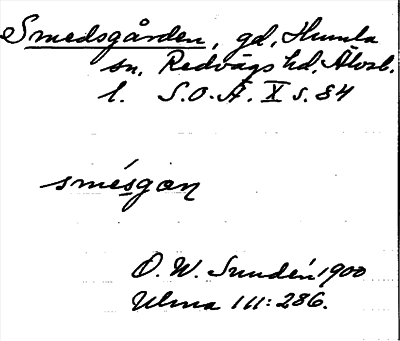 Smedsgården, gd, Humla
sn, Redvägs hd, Älvsb.
l. S.O.Ä. X s. 84
smésgan
O. W. Sundén 1900
Ulma 111:286.